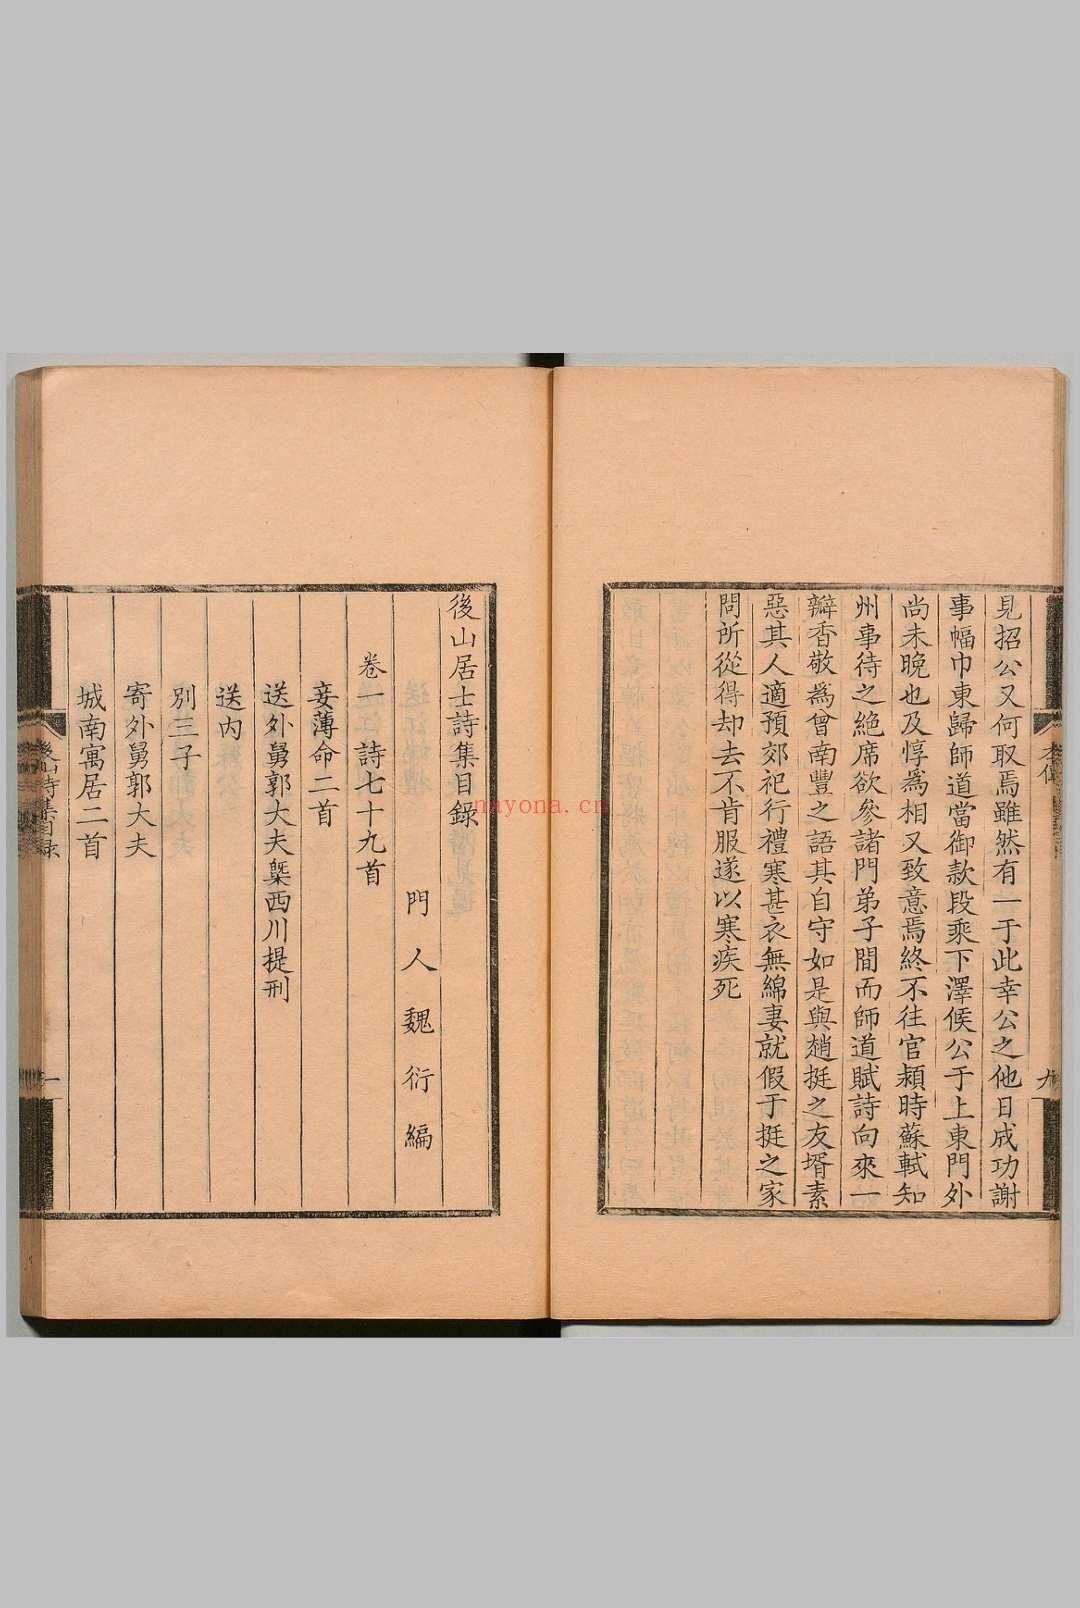 見招公又何取焉雖然有一于此幸公之他日成功謝
事幅巾東歸師道當御款段乘下澤候公于上東門外
尚未晚也及惇為相又致意焉終不往官潁時蘇軾知
州事待之絶席欲參諸門弟子間而師道賦詩向來一
瓣香敬為曾南豐之語其自守如是與趙挺之友壻素
惡其人適預郊祀行禮寒甚衣無綿妻就假于挺之家
問所從得却去不肯服遂以寒疾死
九
後山居士詩集目錄
門人魏衍編
卷一詩七十九首
妾薄命二首
送外舅郭大夫槩西川提刑
送内
別三子
寄外舅郭大夫
城南寓居二首
後山詩集目録
一
nayona.cn